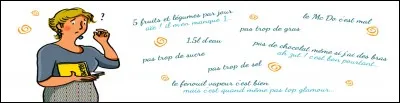 ?
5 fruits et légumes par jour
zut ! il m'en manque 1.
1.5l d'eau
pas trop de sucre
pas trop de gras
pas trop de sel
le Mc Do c'est mal
pas de chocolat même si j'ai des bras
ah zut ! c'est bon pourtant...
le fenouil vapeur c'est bien
mais c'est quand même pas top glamour...